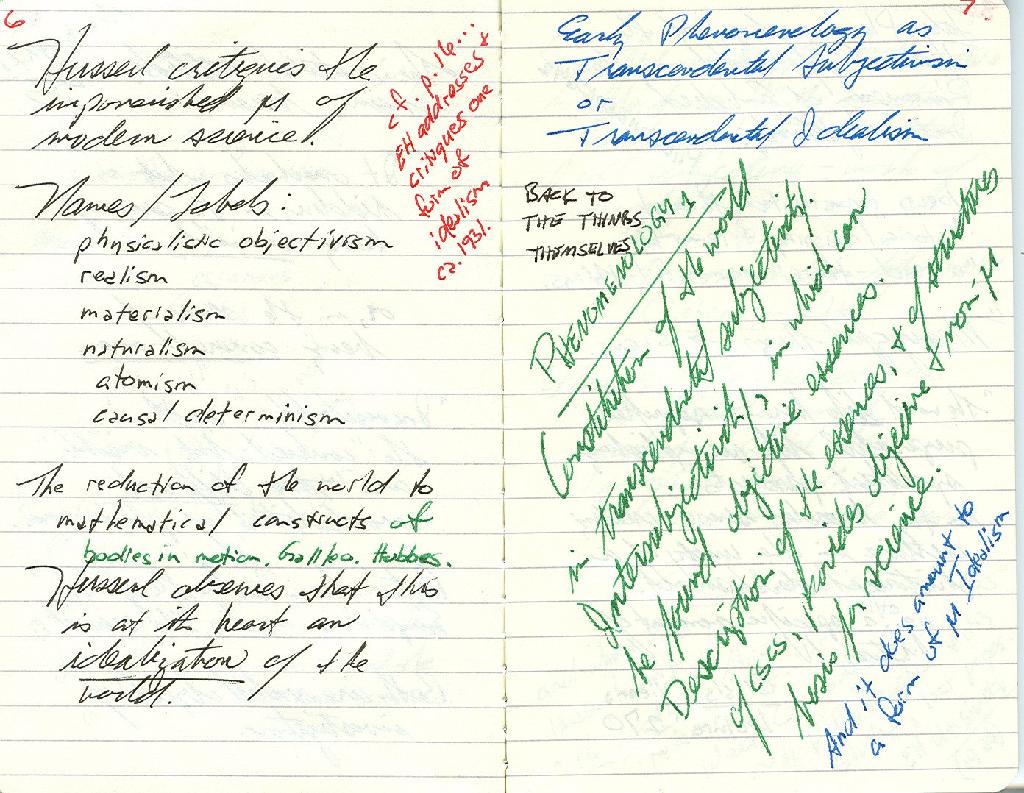 6
Husserl critiques the
impoverished μ of
modern science!
cf. p. 16...
EH addresses &
critiques one
form of
idealism
ca. 1931.
Names/Labels:
physicalistic objectivism
realism
materialism
naturalism
atomism
causal determinism
The reduction of the world to
mathematical constructs of
bodies in motion. Galileo. Hobbes.
Husserl observes that this
is at its heart an
idealization of the
world.
7
Early Phenomenology as
Transcendental Subjectivism
or
Transcendental Idealism
BACK TO
THE THINGS
THEMSELVES
PHENOMENOLOGY 1
Constitution of the world
in transcendental subjectivity!
Intersubjectivity, in which can
be found objective essences.
Description of the essences, & of structures
of cscs, provides objective & non-μ
basis for science.
And it does amount to
a form of μ Idealism